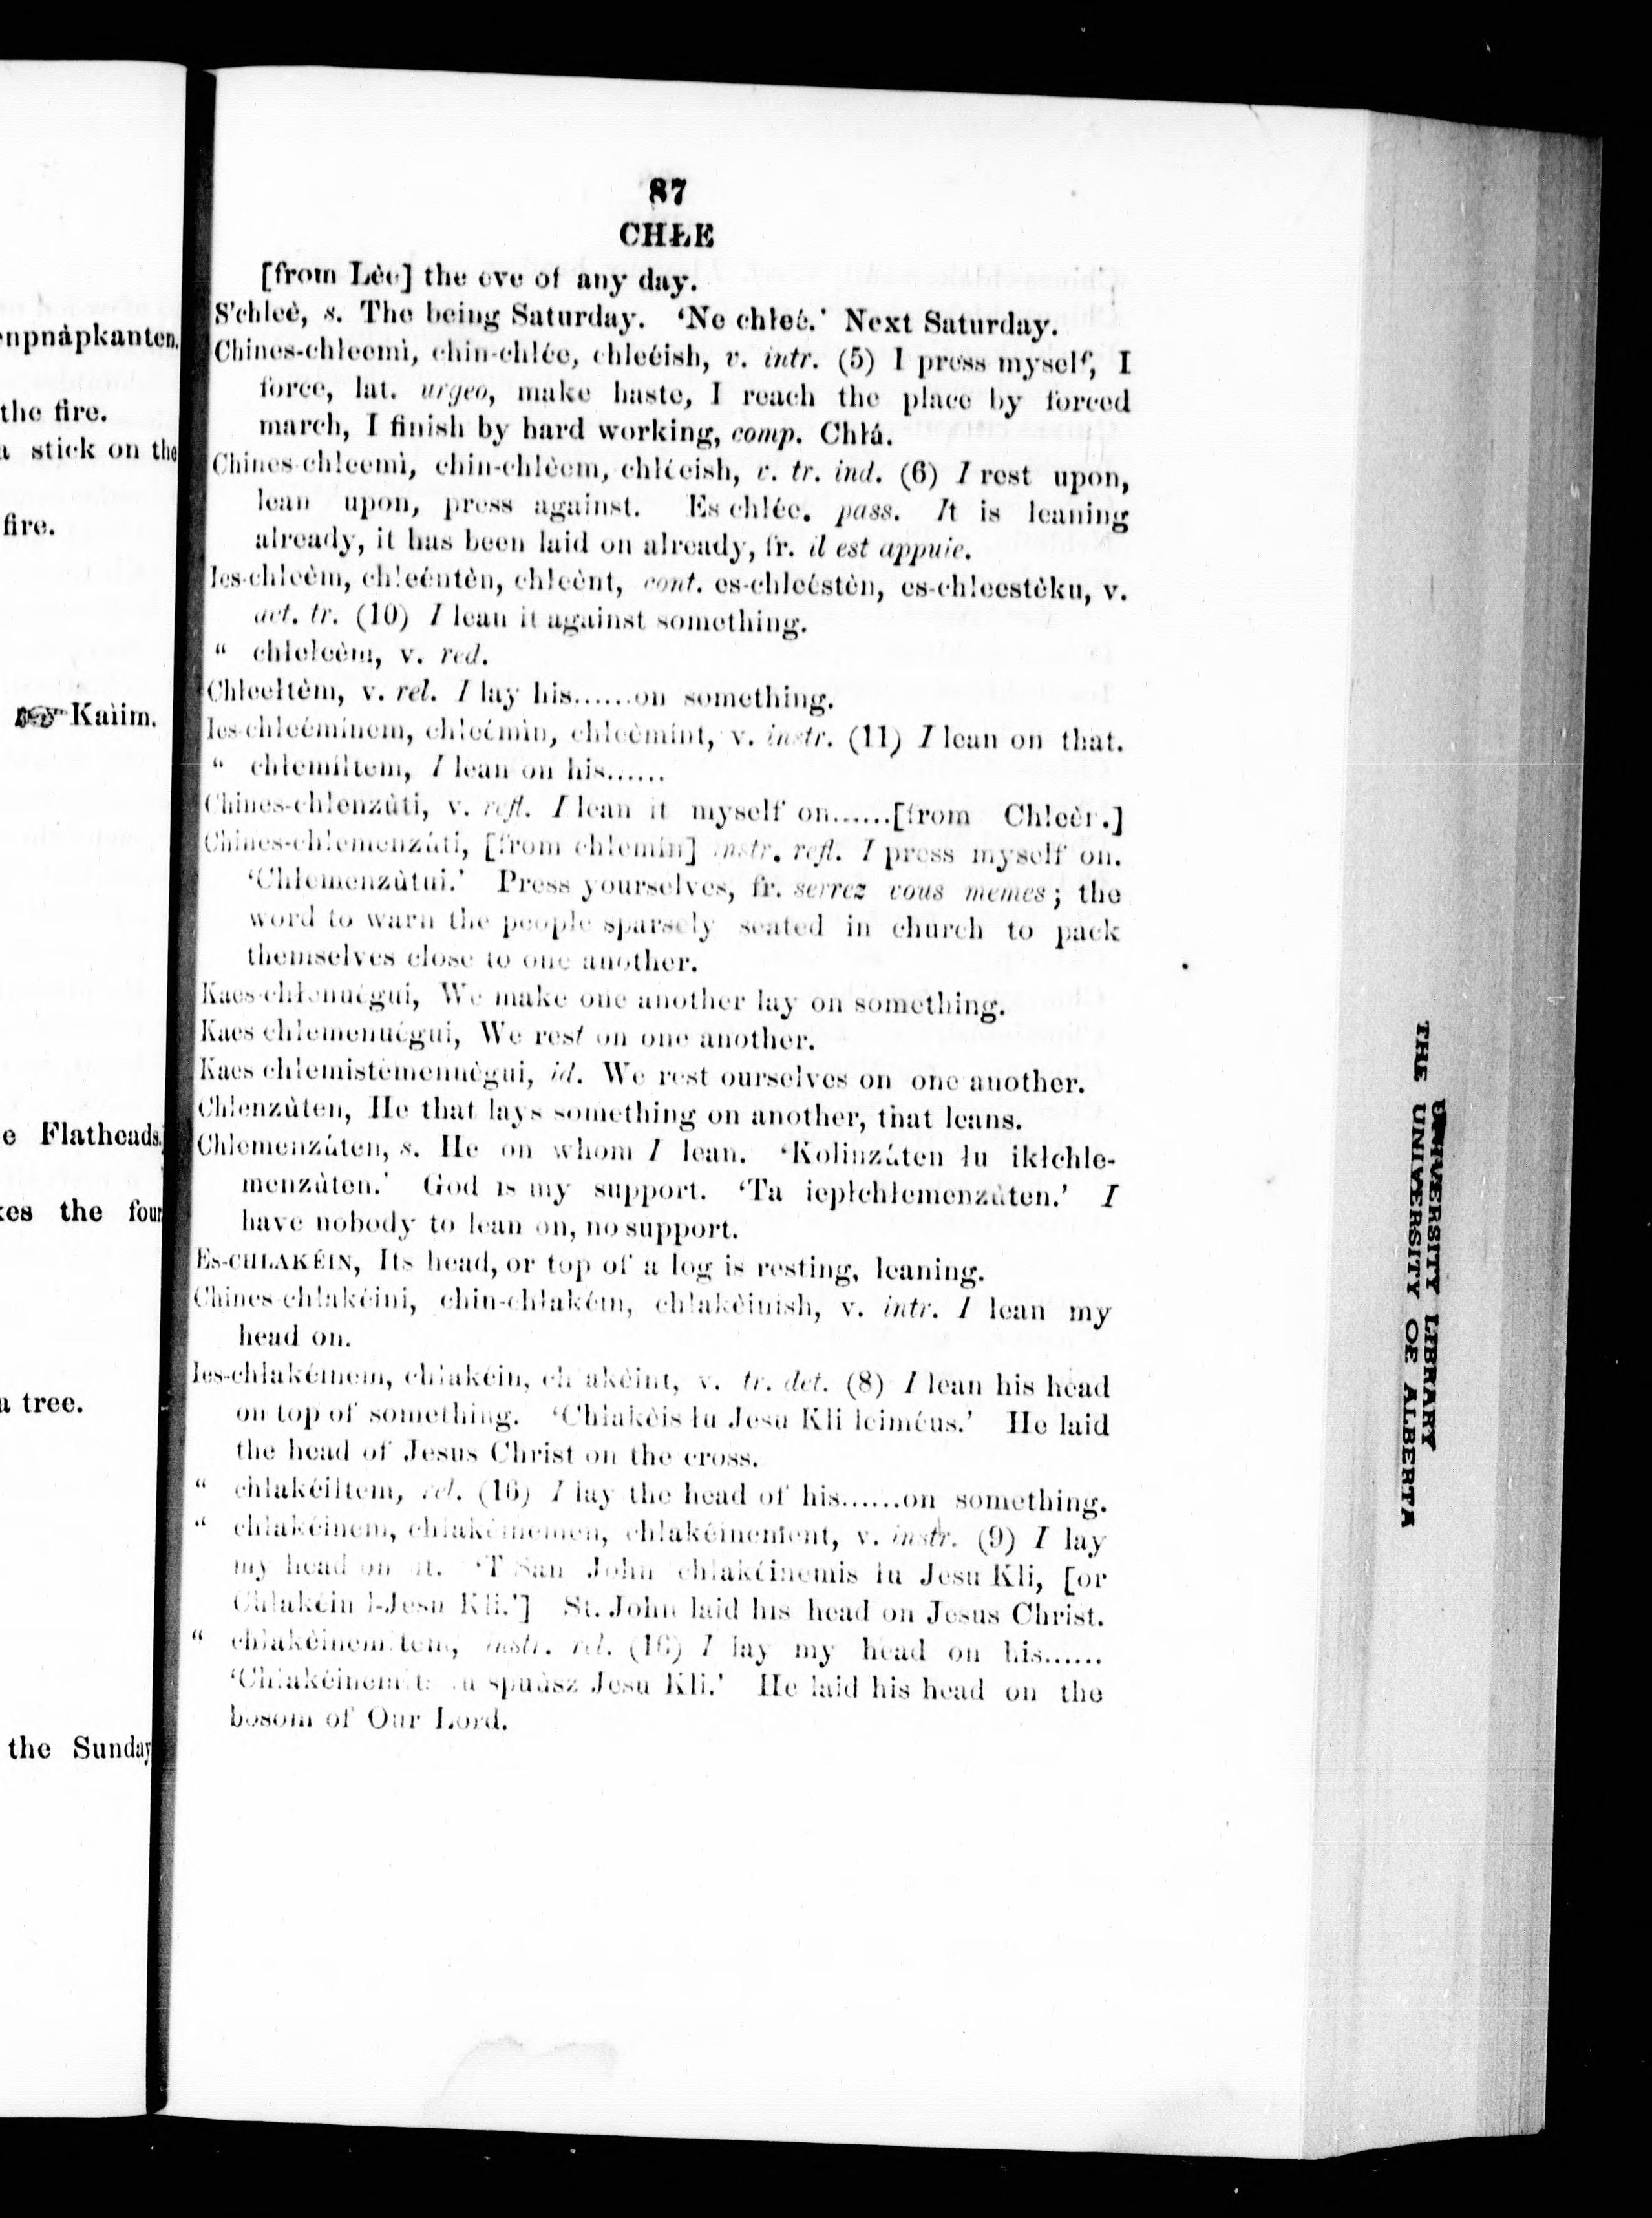 enpnàpkanten.
the fire.
a stick on the
fire.
Kaìim.
e Flatheads.]
kes the four
a tree.
the Sunday
87
CHŁE
[from Lèe] the eve of any day.
S'chłeè, s. The being Saturday. 'Ne chłeé.' Next Saturday.
Chines-chłeemì, chin-chłée, chłeéish, v. intr. (5) I press myself, I
force, lat. urgeo, make haste, I reach the place by forced
march, I finish by hard working, comp. Chłá.
Chines-chłeemì, chin-chłèem, chłéeish, v. tr. ind. (6) I rest upon,
lean upon, press against. Es chłée. pass. It is leaning
already, it has been laid on already, fr. il est appuie.
Ies-chłeèm, chłeéntèn, chłeènt, cont. es-chłeéstèn, es-chłeestèku, v.
act. tr. (10) I lean it against something.
" chłełeèm, v. red.
Chłeełtèm, v. rel. I lay his......on something.
Ies-chłeéminem, chłeémìn, chłeèmint, v. instr. (11) I lean on that.
" chłemíłtem, I lean on his......
Chines-chłenzùti, v. refl. I lean it myself on......[from Chłeèr.]
Chines-chłemenzúti, [from chłemín] instr. refl. I press myself on.
'Chłemenzùtui.' Press yourselves, fr. serrez vous memes; the
word to warn the people sparsely seated in church to pack
themselves close to one another.
Kaes-chłenuégui, We make one another lay on something.
Kaes chłemenuégui, We rest on one another.
Kaes chłemistèmenuègui, id. We rest ourselves on one another.
Chłenzùten, He that lays something on another, that leans.
Chłemenzúten, s. He on whom I lean. 'Kolinzúten łu ikłchłe-
menzùten.' God is my support. 'Ta iepłchłemenzùten.' I
have nobody to lean on, no support.
Es-CHŁAKÉIN, Its head, or top of a log is resting, leaning.
Chines-chłakéini, chin-chłakéin, chłakèinish, v. intr. I lean my
head on.
Ies-chłakéinem, chłakéin, chłakèint, v. tr. det. (8) I lean his head
on top of something. 'Chłakèis łu Jesu Kli łeiméus.' He laid
the head of Jesus Christ on the cross.
" chłakéiłtem, rel. (16) I lay the head of his......on something.
" chłakéinem, chłakéinemen, chłakéinement, v. instr. (9) I lay
my head on it. 'T San John chłakéinemis łu Jesu Kli, [or
Chłakéin l-Jesu Kli.'] St. John laid his head on Jesus Christ.
" chłakèinemłtem, instr. rel. (16) I lay my head on his......
łu spuùsz Jesu Kli.' He laid his head on the
bosom of Our Lord.
UNIVERSITY LIBRARY
THE UNIVERSITY OF ALBERTA